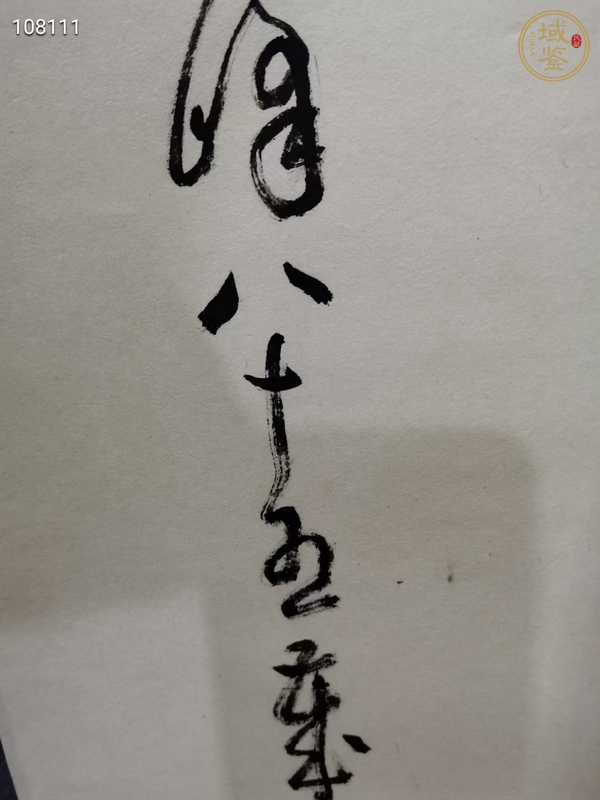 108111
域鉴
峰八十五岁